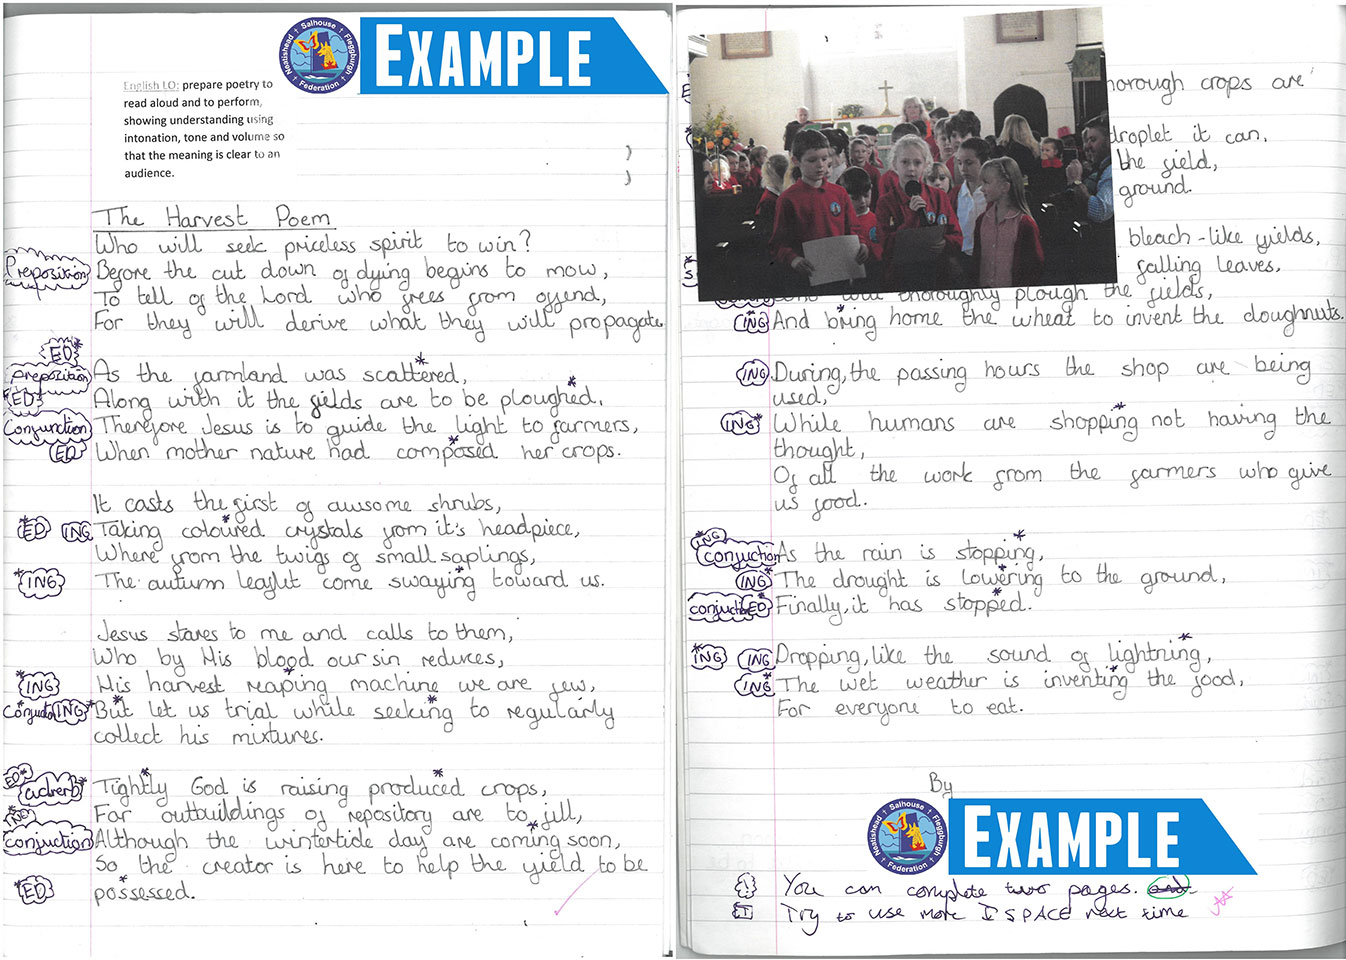 Salhouse
Neatishead
Fleggburgh
Federation
EXAMPLE
English LO: prepare poetry to
read aloud and to perform,
showing understanding using
intonation, tone and volume so
that the meaning is clear to an
audience.
The Harvest Poem
Who will seek priceless spirit to win?
Preposition Before the cut down of dying begins to mow,
To tell of the Lord who frees from offend,
For they will derive what they will propagate
ED
Preposition As the farmland was scattered,
ED Along with it the fields are to be ploughed.
Conjunction Therefore Jesus is to guide the light to farmers,
ED When mother nature had composed her crops.
It casts the first of awsome shrubs,
ED ING Taking coloured crystals from it's headpiece,
Where from the twigs of small saplings,
ING The autumn leaflut come swaying toward us.
Jesus stares to me and calls to them,
Who by His blood our sin reduces,
ING His harvest reaping machine we are few,
ING But let us trial while seeking to regularly
collect his mixtures.
ED
adverb Tightly God is raising produced crops,
ING For outbuildings of repository are to fill,
conjuction Although the wintertide day are coming soon,
So the creator is here to help the yield to be
ED possessed.
horough crops are
droplet it can,
the field,
ground.
bleach-like yields,
falling leaves,
will thoroughly plough the fields,
ING And bring home the wheat to invent the doughnuts.
ING During, the passing hours the shop are being
used,
ING While humans are shopping not having the
thought,
Of all the work from the farmers who give
us food.
ING
conjuction As the rain is stopping,
ING The drought is lowering to the ground,
ED Finally, it has stopped.
ING ING Dropping, like the sound of lightning,
ING The wet weather is inventing the food,
For everyone to eat.
By
Salhouse
Neatishead
Fleggburgh
Federation
EXAMPLE
You can complete two pages.
Try to use more ISPACE next time